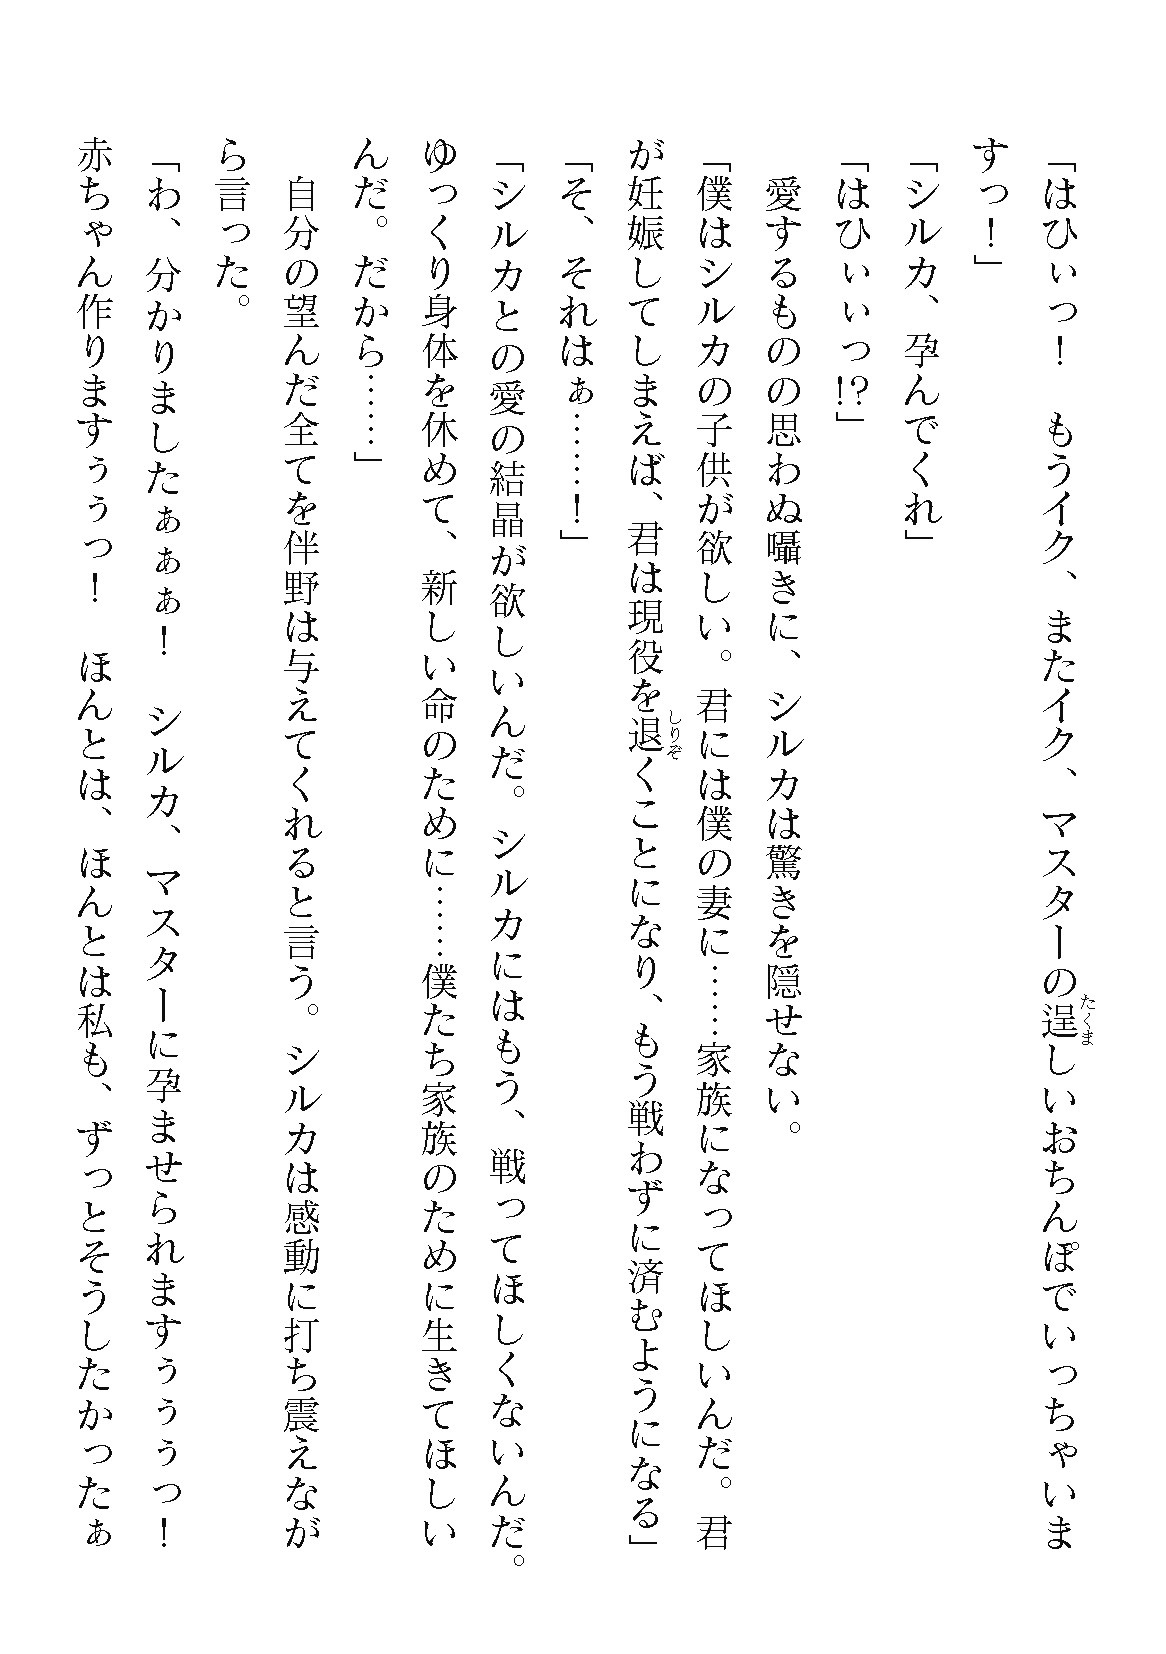 「はひぃっ！　もうイク、またイク、マスターの逞しいおちんぽでいっちゃいま
すっ！」
「シルカ、孕んでくれ」
「はひぃぃっ!?」
　愛するものの思わぬ囁きに、シルカは驚きを隠せない。
「僕はシルカの子供が欲しい。君には僕の妻に……家族になってほしいんだ。君
が妊娠してしまえば、君は現役を退くことになり、もう戦わずに済むようになる」
「そ、それはぁ……！」
「シルカとの愛の結晶が欲しいんだ。シルカにはもう、戦ってほしくないんだ。
ゆっくり身体を休めて、新しい命のために……僕たち家族のために生きてほしい
んだ。だから……」
　自分の望んだ全てを伴野は与えてくれると言う。シルカは感動に打ち震えなが
ら言った。
「わ、分かりましたぁぁぁ！　シルカ、マスターに孕ませられますぅぅぅっ！
赤ちゃん作りますぅぅっ！　ほんとは、ほんとは私も、ずっとそうしたかったぁ
たくま
しりぞ